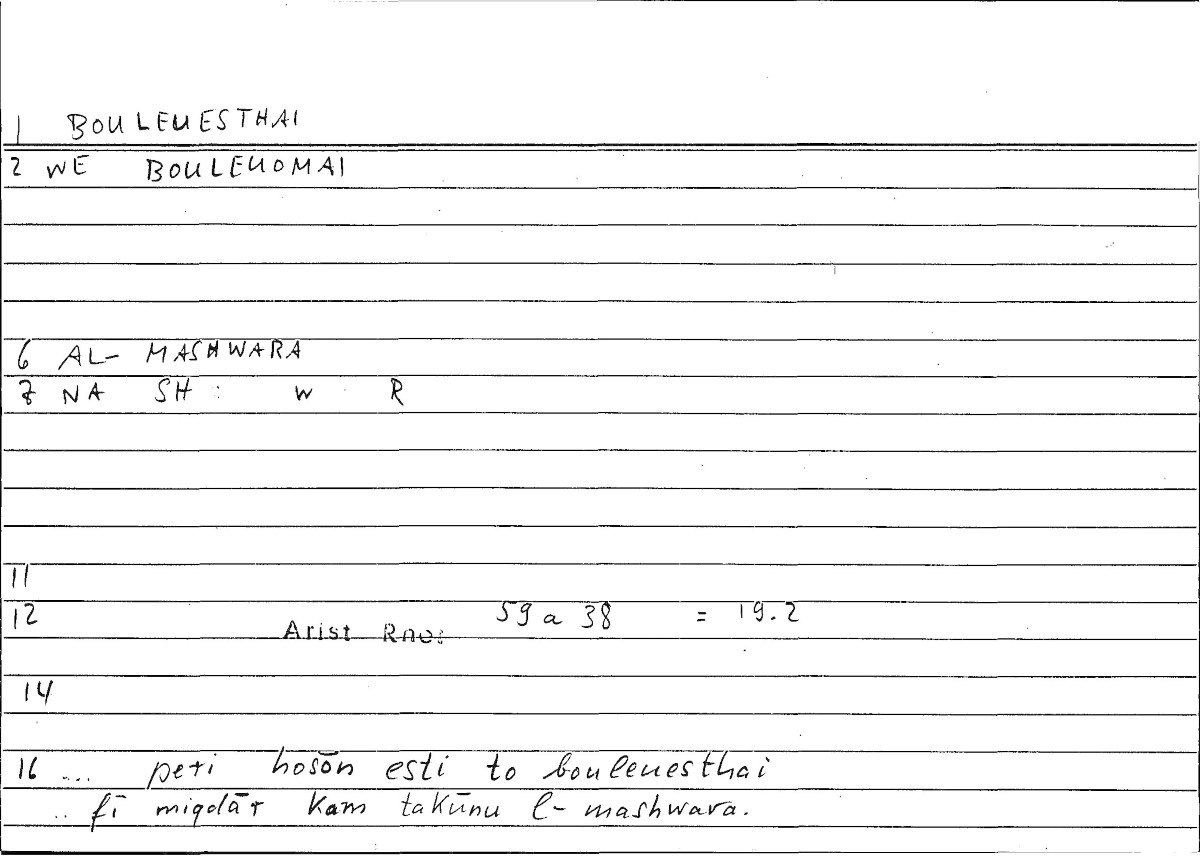 1 BOULEUESTHAI
2 WE BOULEUOMAI
6 AL- MASHWARA
7 NA SH : W R
11
12 Arist 59 a 38 = 19.2
14
16 ... peri hosōn esti to bouleuesthai
.. fī miqdār kam takūnu l- mashwara.